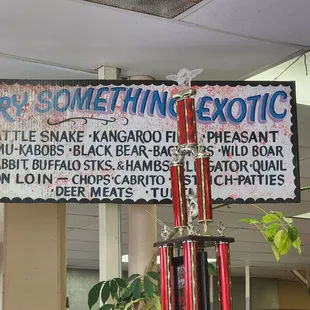 RY SOMETHING EXOTIC
ATTLE SNAKE · KANGAROO FI · PHEASANT
MU-KABOBS · BLACK BEAR-BAC · WILD BOAR
ABBIT, BUFFALO STKS. & HAMBS GATOR · QUAIL
ON LOIN — CHOPS · CABRITO CH-PATTIES
DEER MEATS · TU